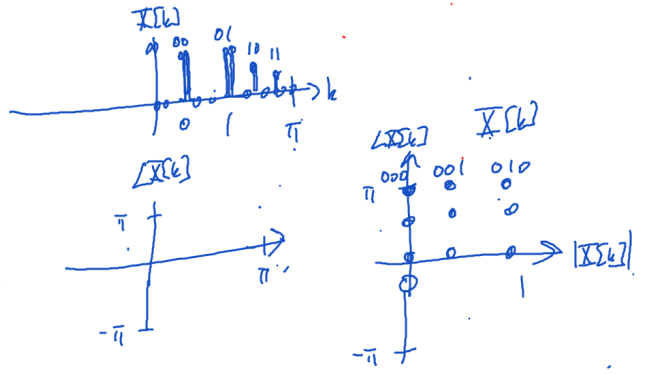 X[k]
00 01 10 11
k
0 1 π
∠X[k]
π
π
-π
∠X[k] X[k]
000 001 010
π
|X[k]|
1
-π